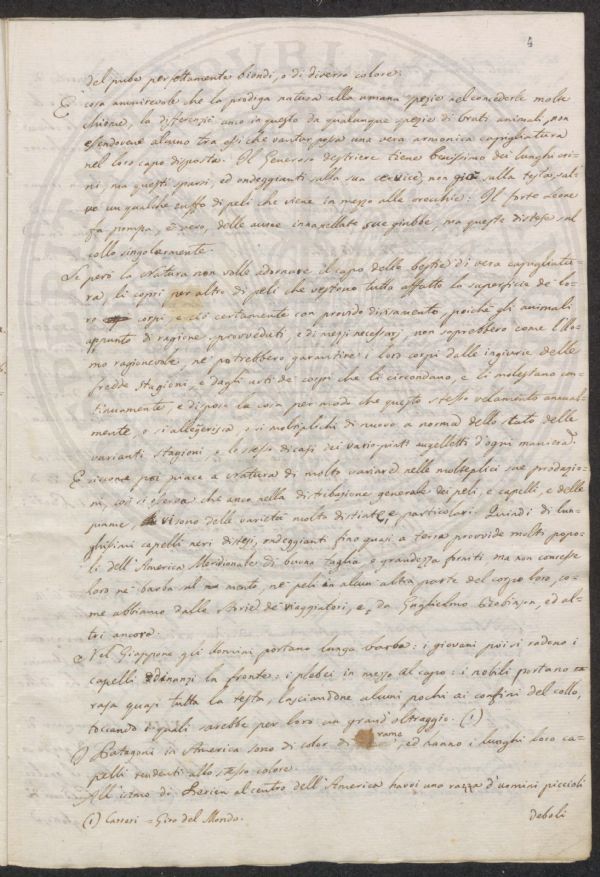 4
del pube perfettamente biondi, o di diverso colore.
È cosa ammirevole che la prodiga natura alla umana spezie nel concederle molte
chiome, la differenziò anco in questo da qualunque spezie di bruti animali, non
essendovene alcuno tra essi che vantar possa una vera armonica capigliatura
nel loro capo disposta. Il Generoso destriere tiene benissimo dei lunghi cri-
ni, ma questi sparsi, ed ondeggianti sulla sua cervice, non già sulla testa, sal-
vo un qualche ciuffo di peli che viene in mezzo alle orecchie: Il forte Leone
fa pompa, è vero, delle auree inanellate sue giubbe, ma queste distese sul
collo singolarmente.
Se però la Natura non volle adornare il capo delle bestie di vera capigliatu-
ra, li coprì per altro di peli che vestono tutto affatto la superficie de' lo-
ro corpi, e ciò certamente con provido divisamento, poichè gli animali
appunto di ragione sprovveduti, e di mezzi necessarj, non saprebbero come l'Uo-
mo ragionevole, nè potrebbero garantire i loro corpi dalle ingiurie delle
fredde stagioni, e dagli urti de' corpi che li circondano, e li molestano con-
tinuamente, e dispose la cosa per modo che questo stesso velamento annual-
mente, o si allegerisca, o si moltiplichi di nuovo a norma dello stato delle
varianti stagioni, e lo stesso dicasi dei variopinti augelletti d'ogni maniera.
E siccome poi piace a Natura di molto variare nelle molteplici sue produzio-
ni, così si osserva che anco nella distribuzione generale dei peli, e capelli, e delle
piume, vi sono delle varietà molto distinte, e particolari. Quindi di lun-
ghissimi capelli neri distesi, ondeggianti fino quasi a terra provvide molti popo-
li dell'America Meridionale di buona taglia, e grandezza forniti: ma non concesse
loro nè barba sul mento, nè peli in alcun'altra parte del corpo loro, co-
me abbiamo dalle storie de' viaggiatori, e da Guglielmo, ed al-
tri ancora.
Nel Giappone gli uomini portano lunga barba: i giovani poi si radono i
capelli dinanzi la fronte: i plebei in mezzo al capo: i nobili portano
rasa quasi tutta la testa, lasciandone alcuni pochi ai confini del collo,
toccando i quali sarebbe per loro un grand'oltraggio. (1)
I Patagoni in America sono di color di rame, ed hanno i lunghi loro ca-
pelli tendenti allo stesso colore.
All'istmo di Darien al centro dell'America havvi una razza d'uomini piccioli
(1) Carreri = Giro del Mondo.
deboli